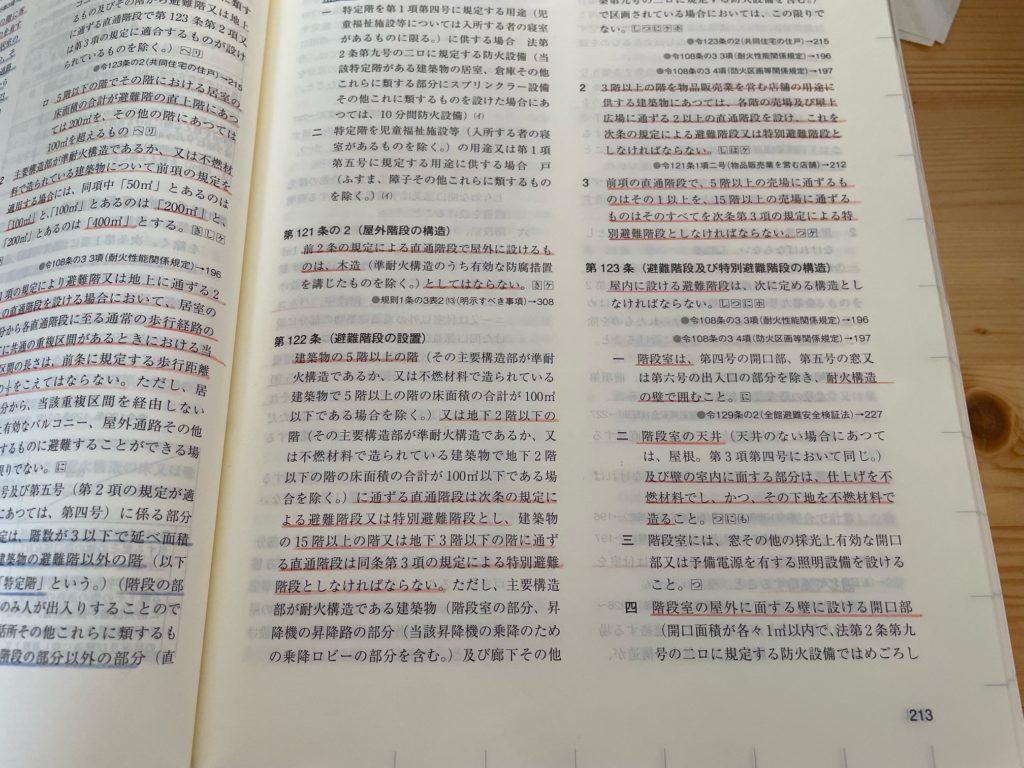 に通ずる直通階段で第123条第2項又
は第3項の規定に適合するものが設け
られているものを除く。)
●令123条の2(共同住宅の住戸)→215
ロ 5階以下の階でその階における居室の
床面積の合計が避難階の直上階にあつ
ては200㎡を、その他の階にあつては
100㎡を超えるもの
2 主要構造部が準耐火構造であるか、又は不燃材
料で造られている建築物について前項の規定を
適用する場合には、同項中「50㎡」とあるのは
「100㎡」と、「100㎡」とあるのは「200㎡」と、
「200㎡」とあるのは「400㎡」とする。
●令108条の3 3項(耐火性能関係規定)→196
1項の規定により避難階又は地上に通ずる2
の直通階段を設ける場合において、居室の
分から各直通階段に至る通常の歩行経路の
に共通の重複区間があるときにおける当
区間の長さは、前条に規定する歩行距離
をこえてはならない。ただし、居
分から、当該重複区間を経由しない
有効なバルコニー、屋外通路その他
するものに避難することができる場
りでない。
号及び第五号(第2項の規定が適
にあつては、第四号)に係る部分
定は、階数が3以下で延べ面積
建築物の避難階以外の階(以下
「特定階」という。)(階段の部
のみ人が出入りすることので
話所その他これらに類するも
階段の部分以外の部分(直
一 特定階を第1項第四号に規定する用途(児
童福祉施設等については入所する者の寝室
があるものに限る。)に供する場合 法第
2条第九号の二ロに規定する防火設備(当
該特定階がある建築物の居室、倉庫その他
これらに類する部分にスプリンクラー設備
その他これに類するものを設けた場合にあ
つては、10分間防火設備)(イ)
二 特定階を児童福祉施設等(入所する者の寝
室があるものを除く。)の用途又は第1項
第五号に規定する用途に供する場合 戸
(ふすま、障子その他これらに類するもの
を除く。)(イ)
第121条の2(屋外階段の構造)
前2条の規定による直通階段で屋外に設けるも
のは、木造(準耐火構造のうち有効な防腐措置
を講じたものを除く。)としてはならない。
●規則1条の3表2⒀(明示すべき事項)→308
第122条(避難階段の設置)
建築物の5階以上の階(その主要構造部が準耐
火構造であるか、又は不燃材料で造られている
建築物で5階以上の階の床面積の合計が100㎡
以下である場合を除く。)又は地下2階以下の
階(その主要構造部が準耐火構造であるか、又
は不燃材料で造られている建築物で地下2階
以下の階の床面積の合計が100㎡以下である場
合を除く。)に通ずる直通階段は次条の規定に
よる避難階段又は特別避難階段とし、建築物
の15階以上の階又は地下3階以下の階に通ず
る直通階段は同条第3項の規定による特別避難
階段としなければならない。ただし、主要構造
部が耐火構造である建築物(階段室の部分、昇
降機の昇降路の部分(当該昇降機の乗降のため
の乗降ロビーの部分を含む。)及び廊下その他
で区画されている場合においては、この限りで
ない。
●令123条の2(共同住宅の住戸)→215
●令108条の3 3項(耐火性能関係規定)→196
●令108条の3 4項(防火区画等関係規定)→197
2 3階以上の階を物品販売業を営む店舗の用途に
供する建築物にあつては、各階の売場及び屋上
広場に通ずる2以上の直通階段を設け、これを
次条の規定による避難階段又は特別避難階段と
しなければならない。
●令121条1項二号(物品販売業を営む店舗)→212
3 前項の直通階段で、5階以上の売場に通ずるも
のはその1以上を、15階以上の売場に通ずる
ものはそのすべてを次条第3項の規定による特
別避難階段としなければならない。
第123条(避難階段及び特別避難階段の構造)
屋内に設ける避難階段は、次に定める構造とし
なければならない。
●令108条の3 3項(耐火性能関係規定)→196
●令108条の3 4項(防火区画等関係規定)→197
一 階段室は、第四号の開口部、第五号の窓又
は第六号の出入口の部分を除き、耐火構造
の壁で囲むこと。
●令129条の2(全館避難安全検証法)→227
二 階段室の天井(天井のない場合にあつて
は、屋根。第3項第四号において同じ。)
及び壁の室内に面する部分は、仕上げを不
燃材料でし、かつ、その下地を不燃材料で
造ること。
三 階段室には、窓その他の採光上有効な開口
部又は予備電源を有する照明設備を設ける
こと。
四 階段室の屋外に面する壁に設ける開口部
(開口面積が各々1㎡以内で、法第2条第九
号の二ロに規定する防火設備ではめごろし
213